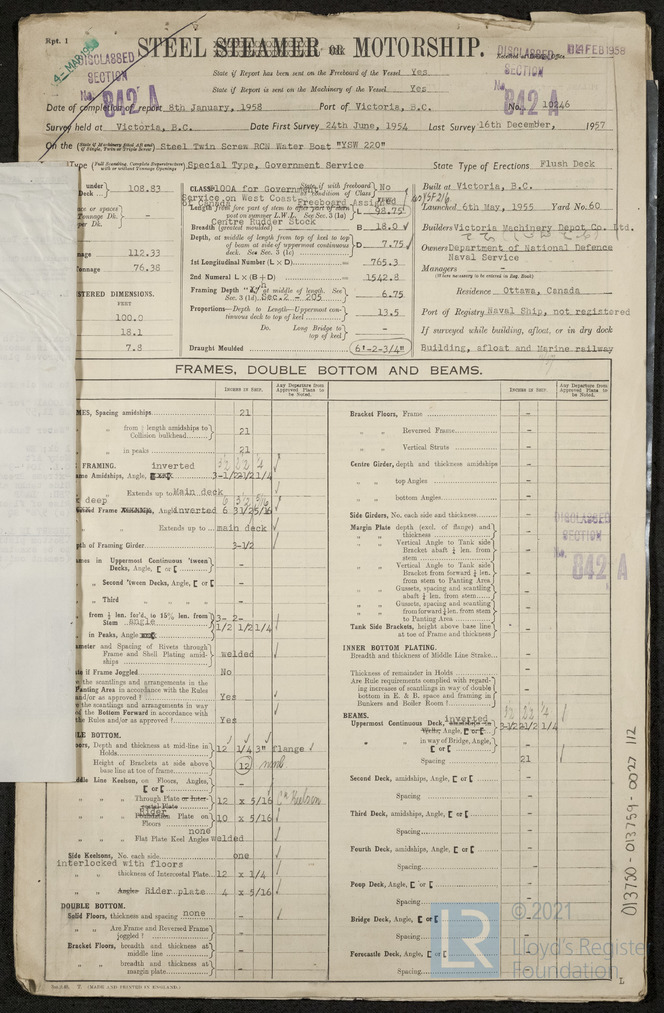 Rpt. 1
4- MAR 1958
STEEL STEAMER OR MOTORSHIP.
DISCLASSED
SECTION
No. 842 A
14 FEB 1958
State if Report has been sent on the Freeboard of the Vessel Yes
State if Report is sent on the Machinery of the Vessel Yes
DISCLASSED
SECTION
No. 842 A
Date of completion of report 8th January, 1958 Port of Victoria, B.C. No. 10246
Survey held at Victoria, B.C. Date First Survey 24th June, 1954 Last Survey 16th December, 1957
On the Steel Twin Screw RCN Water Boat "YSW 220"
Type Special Type, Government Service State Type of Erections Flush Deck
under
Deck 108.83
112.33
Tonnage 76.38
REGISTERED DIMENSIONS.
FEET
100.0
18.1
7.8
CLASS 100A for Government
Service on West Coast
of Canada
State if with freeboard as condition of Class No
Freeboard Assigned
L 98.75
Centre Rudder Stock
Breadth (greatest moulded) B 18.0
Depth, at middle of length from top of keel to top of beam at side of uppermost continuous deck. See Sec. 3 (1c) D 7.75
1st Longitudinal Number (L × D) 765.3
2nd Numeral L × (B + D) 1542.8
Framing Depth "d" at middle of length. See Sec. 3 (1d) Sec.2 - 205 6.75
Proportions—Depth to Length—Uppermost continuous deck to top of keel 13.5
Do. Long Bridge to top of keel -
Draught Moulded 6'-2-3/4"
Built at Victoria, B.C.
Launched 6th May, 1955 Yard No. 60
Builders Victoria Machinery Depot Co. Ltd.
Owners Department of National Defence
Naval Service
Managers -
(Where necessary to be entered in Reg. Book)
Residence Ottawa, Canada
Port of Registry Naval Ship, not registered
If surveyed while building, afloat, or in dry dock
Building, afloat and Marine railway
FRAMES, DOUBLE BOTTOM AND BEAMS.
INCHES IN SHIP.
Any Departure from Approved Plans to be Noted.
INCHES IN SHIP.
Any Departure from Approved Plans to be Noted.
FRAMES, Spacing amidships 21
" " from ½ length amidships to Collision bulkhead 21
" " in peaks 21
FRAMING. inverted
Frame Amidships, Angle, 3-1/2 2 1/2 1/4
" " Extends up to Main deck
deep
Frame inverted 6 3 1/2 5/16
" " Extends up to main deck
Depth of Framing Girder 3-1/2
Frames in Uppermost Continuous 'tween Decks, Angle, [ or [ -
" " Second 'tween Decks, Angle, [ or [ -
" " Third " " " " -
" " from ½ len. for'd. to 15% len. from Stem angle 3- 2-
" " in Peaks, Angle 1/2 1/2 1/4
Diameter and Spacing of Rivets through Frame and Shell Plating amidships welded
State if Frame Joggled No
the scantlings and arrangements in the Panting Area in accordance with the Rules and/or as approved? Yes
the scantlings and arrangements in way of the Bottom Forward in accordance with the Rules and/or as approved? Yes
SINGLE BOTTOM.
Floors, Depth and thickness at mid-line in Holds 12 1/4 3" flange
Height of Brackets at side above base line at toe of frames 12
Middle Line Keelson, on Floors, Angles, [ or [ -
" " Through Plate or Intercostal Plate 12 x 5/16
" " Rider Foundation Plate on Floors 10 x 5/16
none
" " Flat Plate Keel Angles welded
Side Keelsons, No. each side one
interlocked with floors
" " thickness of Intercostal Plate 12 x 1/4
" " Angles Rider plate 4 x 5/16
DOUBLE BOTTOM.
Solid Floors, thickness and spacing none -
" " Are Frame and Reversed Frame joggled? -
Bracket Floors, breadth and thickness at middle line -
" " breadth and thickness at margin plate -
Bracket Floors, Frame -
" " Reversed Frame -
" " Vertical Struts -
Centre Girder, depth and thickness amidships -
" " top Angles -
" " bottom Angles -
Side Girders, No. each side and thickness -
Margin Plate depth (excl. of flange) and thickness -
" " Vertical Angle to Tank side Bracket abaft ¼ len. from stem -
" " Vertical Angle to Tank side Bracket from forward ¼ len. from stem to Panting Area -
" " Gussets, spacing and scantling abaft ¼ len. from stem -
" " Gussets, spacing and scantling from forward ¼ len. from stem to Panting Area -
Tank Side Brackets, height above base line at toe of Frame and thickness -
DISCLASSED
SECTION
No. 842 A
INNER BOTTOM PLATING.
Breadth and thickness of Middle Line Strake -
Thickness of remainder in Holds -
Are Rule requirements complied with regarding increases of scantlings in way of double bottom in E. & B. space and framing in Bunkers and Boiler Room? -
BEAMS.
Uppermost Continuous Deck, inverted Angle, [ or [ 3-1/2 2 1/2 1/4
" " in way of Bridge, Angle, [ or [ -
Spacing 21
Second Deck, amidships, Angle, [ or [ -
Spacing -
Third Deck, amidships, Angle, [ or [ -
Spacing -
Fourth Deck, amidships, Angle, [ or [ -
Spacing -
Poop Deck, Angle, [ or [ -
Spacing -
Bridge Deck, Angle, [ or [ -
Spacing -
Forecastle Deck, Angle, [ or [ -
Spacing -
(MADE AND PRINTED IN ENGLAND.)
L
013750 - 013759 - 0027 1/2
LR
© 2021
Lloyd's Register
Foundation